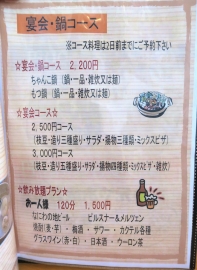 宴会・鍋コース
※コース料理は2日前までにご予約下さい
☆宴会・鍋コース 2,200円
ちゃんこ鍋（鍋・一品・雑炊又は麺）
もつ鍋（鍋・一品・雑炊又は麺）
☆宴会コース☆
2,500円コース
（枝豆・造り三種盛り・サラダ・揚物三種類・ミックスピザ）
3,000円コース
（枝豆・造り五種盛り・サラダ・揚物四種類・ミックスピザ・雑炊）
☆飲み放題プラン☆
お一人様 120分 1,500円
なにわの地ビール ピルスナー&メルツェン
焼酎（麦・芋）・梅酒・サワー・カクテル各種
グラスワイン（赤・白）・日本酒・ウーロン茶